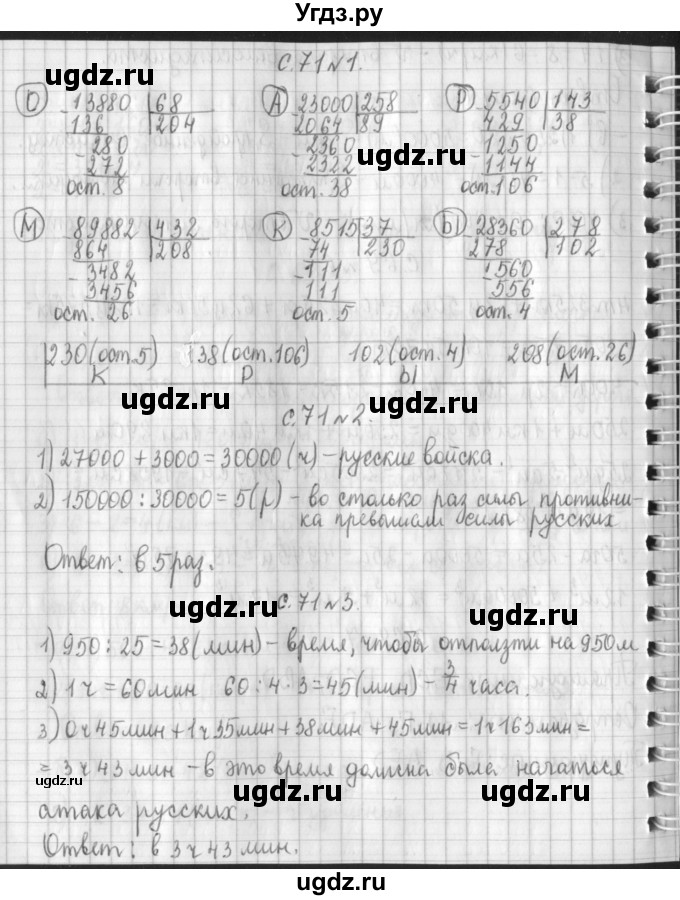 Угдз.ру
с.71 №1.
ugdz.ru ugdz.ru
О 13880 | 68 А 23000 | 258 Р 5540 | 143
136 204 2064 89 429 38
280 2360 1250
272 2322 1144
ост. 8 ост. 38 ост. 106
ugdz.ru
М 89882 | 432 К 8515 | 37 Ы 28360 | 278
864 208 74 230 278 102
3482 111 1560
3456 111 556
ост. 26 ост. 5 ост. 4
ugdz.ru
230 (ост.5) 38 (ост.106) 102 (ост.4) 208 (ост.26)
К Р Ы М
ugdz.ru ugdz.ru
с.71 №2.
1) 27000 + 3000 = 30000 (ч) - русские войска.
ugdz.ru
2) 150000 : 30000 = 5 (р) - во столько раз силы противни-
ка превышали силы русских
ugdz.ru
Ответ: в 5 раз.
ugdz.ru
с.71 №3.
1) 950 : 25 = 38 (мин) - время, чтобы отползти на 950 м
2) 1 ч = 60 мин 60 : 4 · 3 = 45 (мин) - 3/4 часа.
ugdz.ru
3) 0 ч 45 мин + 1 ч 35 мин + 38 мин + 45 мин = 1 ч 163 мин =
= 3 ч 43 мин - в это время должна была начаться
ugdz.ru
ugdz.ru ugdz.ru
атака русских.
Ответ: в 3 ч 43 мин.
ugdz.ru
ugdz.ru